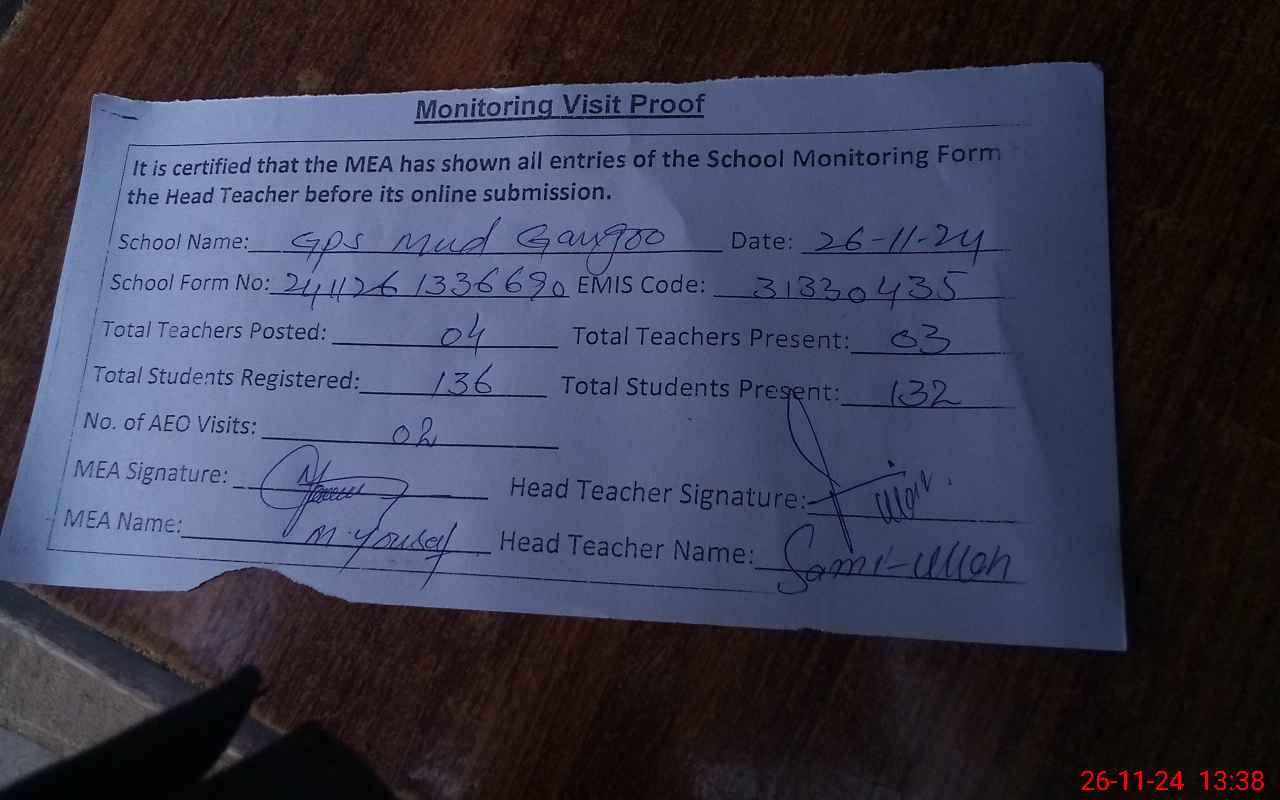 Monitoring Visit Proof
It is certified that the MEA has shown all entries of the School Monitoring Form
the Head Teacher before its online submission.
School Name: GPS Mud Gangoo Date: 26-11-24
School Form No: 241126 1336690 EMIS Code: 31330435
Total Teachers Posted: 04 Total Teachers Present: 03
Total Students Registered: 136 Total Students Present: 132
No. of AEO Visits: 02
MEA Signature: Head Teacher Signature:
MEA Name: M. Yousaf Head Teacher Name: Sami-ullah
26-11-24 13:38